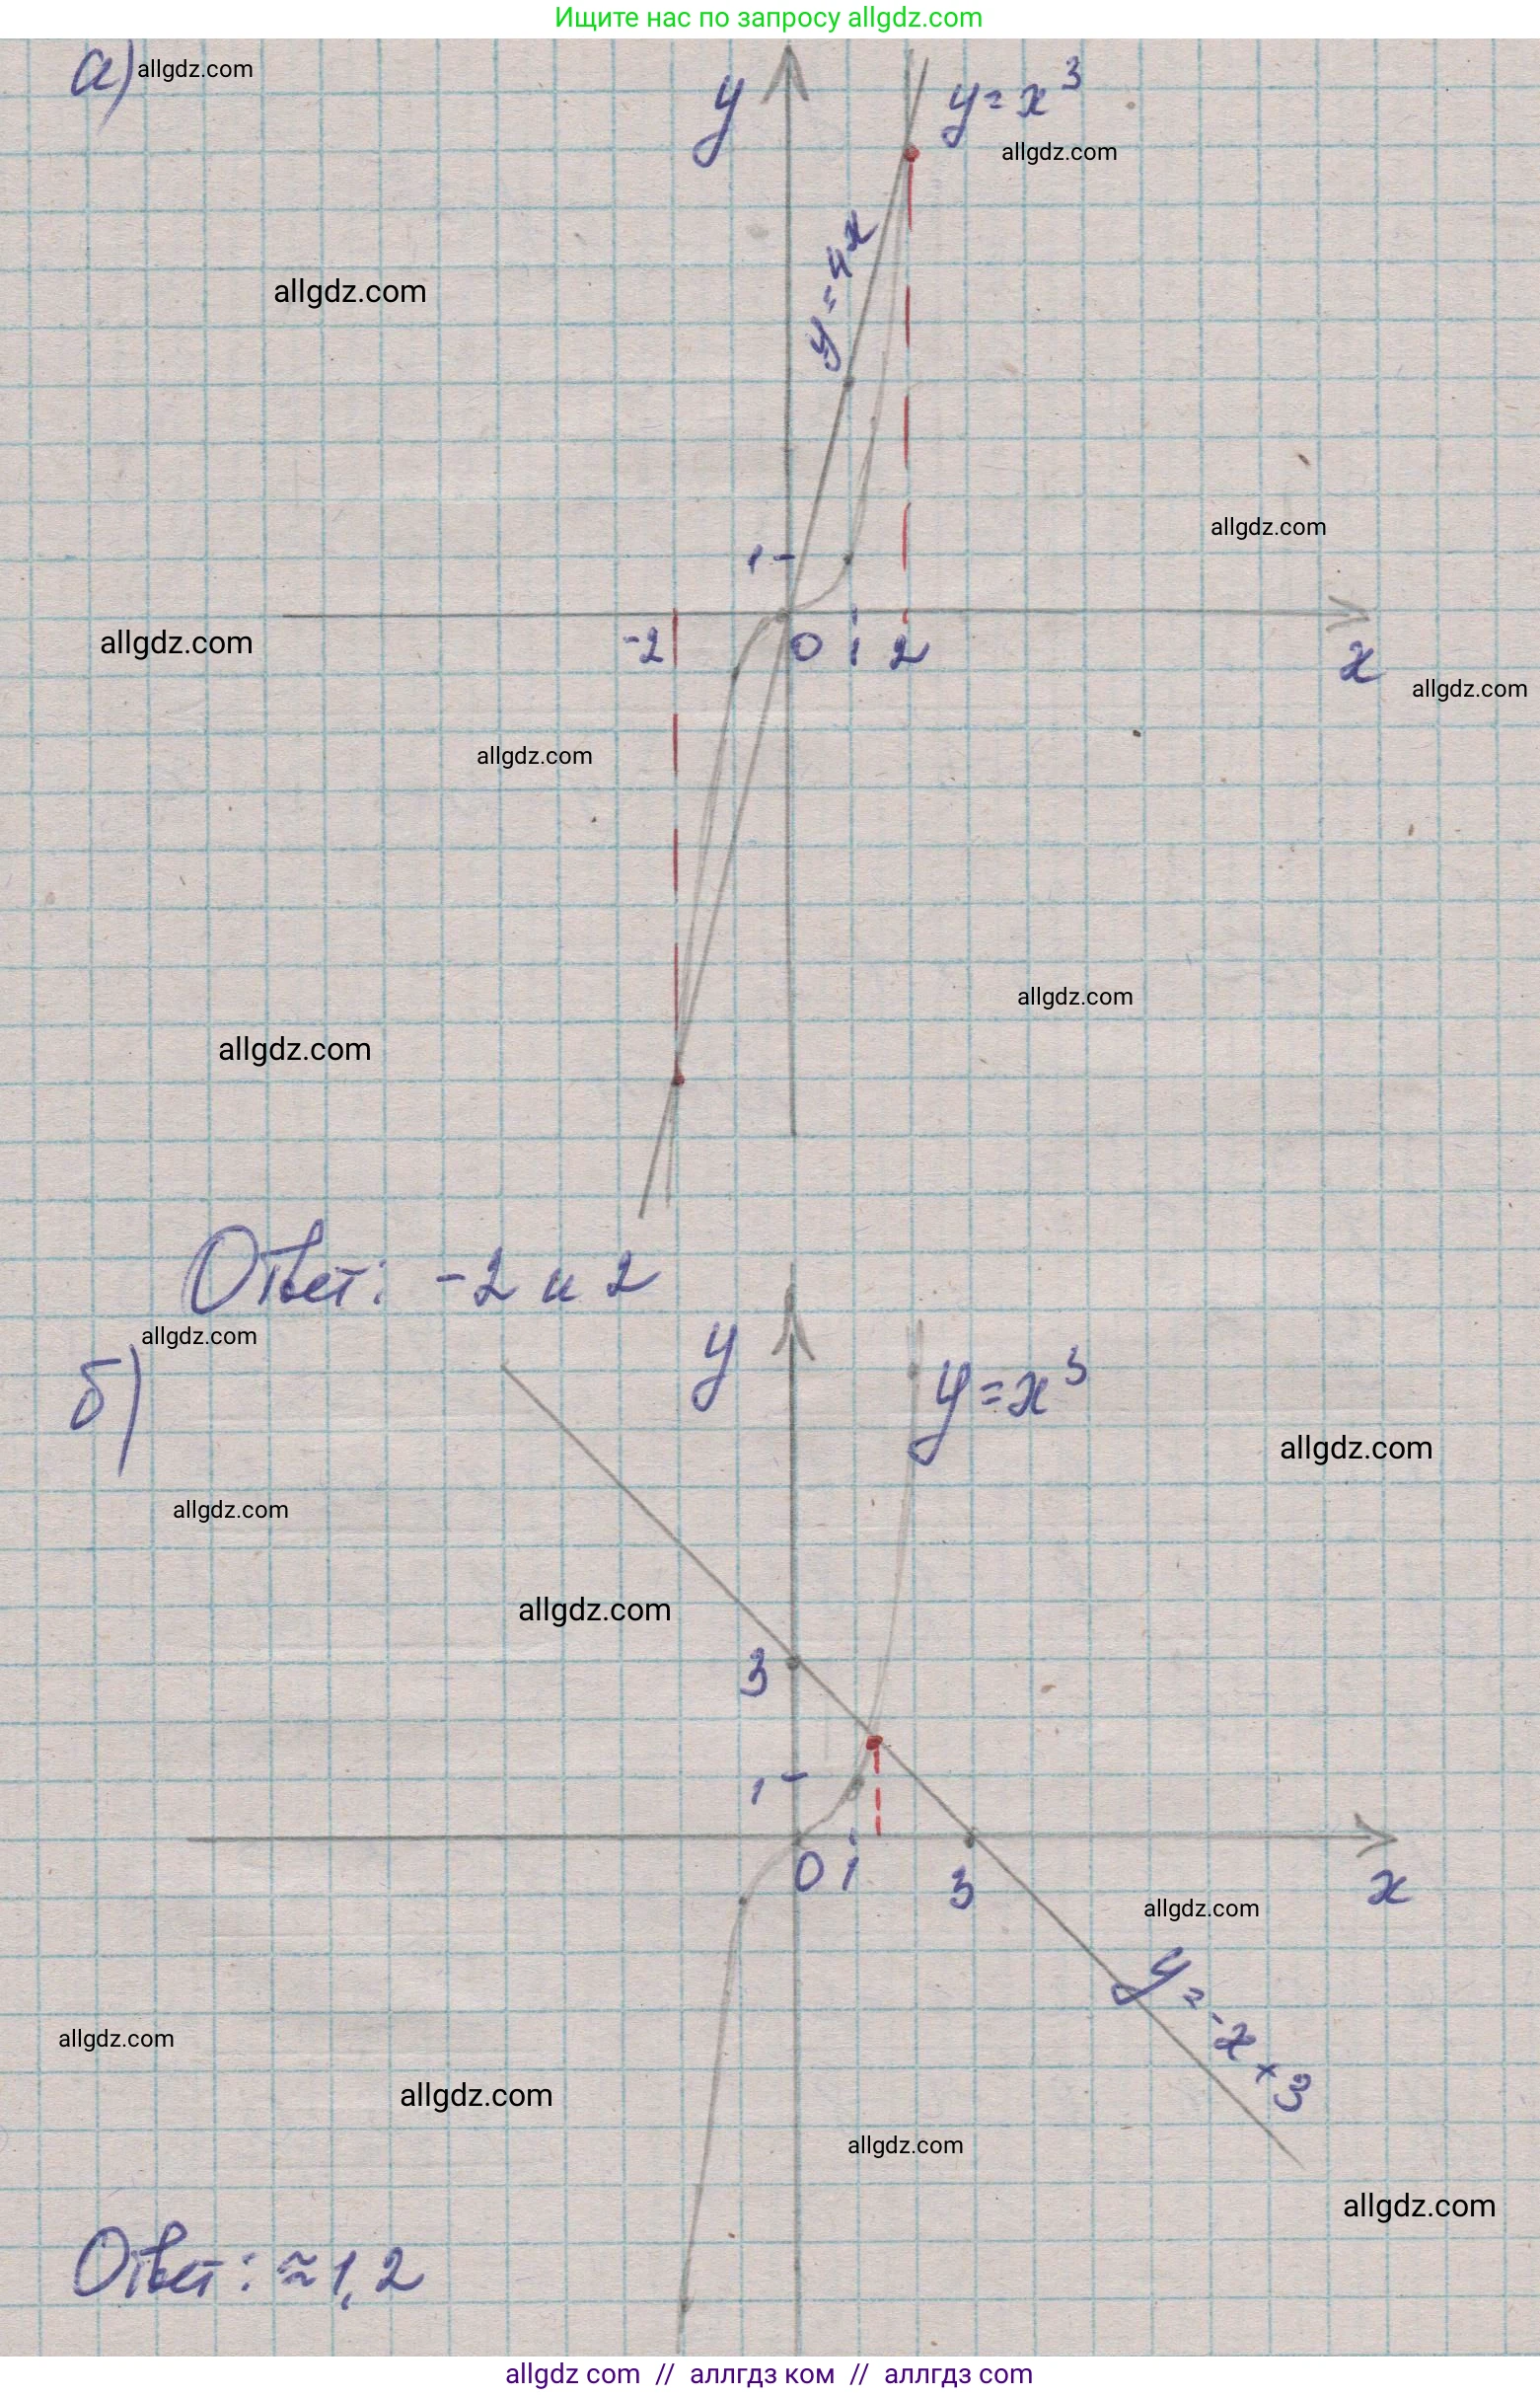 Ищите нас по запросу allgdz.com
а) allgdz.com
y
y=x³
allgdz.com
y=4x
allgdz.com
1
allgdz.com
allgdz.com
-2 0 1 2
x
allgdz.com
allgdz.com
allgdz.com
allgdz.com
Ответ: -2 и 2
allgdz.com
б)
y
y=x³
allgdz.com
allgdz.com
allgdz.com
3
1
0 1 3
x
allgdz.com
y=-x+3
allgdz.com
allgdz.com
allgdz.com
allgdz.com
Ответ: ≈1,2
allgdz com // аллгдз ком // аллгдз com